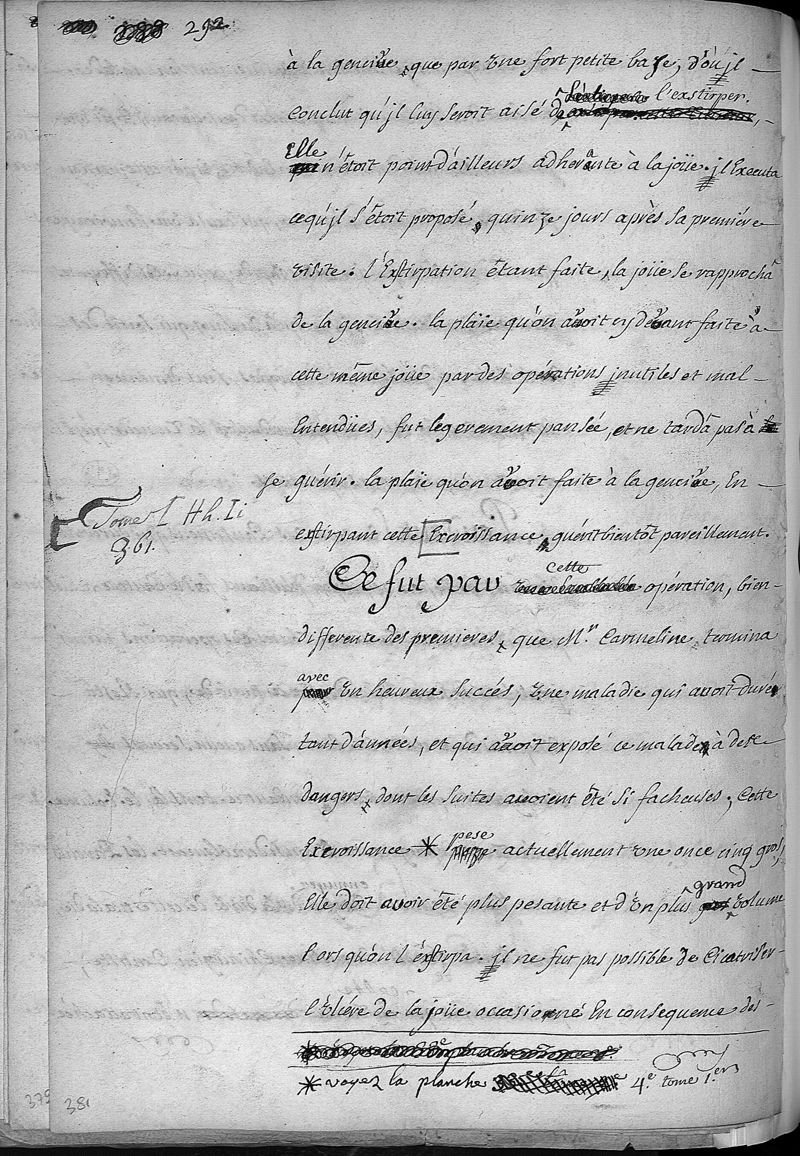 292
à la gencive, que par une fort petite baze, d'où jl
l'exstirper.
Conclut qu'jl luy seroit aisé de
Elle
n'étoit point d'ailleurs adherante à la joüe. jl Executa
ce qu'jl s'étoit proposé, quinze jours après sa premiére
visite. l'Exstirpation êtant faite, la joüe se rapprocha
de la gencive. la plaïe qu'on avoit cy devant faite à
cette même joüe par des opérations jnutiles et mal
Entendües, fut legerement pansée, et ne tarda pas à
se guérir. la plaïe qu'on avoit faite à la gencive, En
Tome I Hh. Ii
361.
exstirpant cette [Excroissance, guérit bientôt pareillement.
cette
Ce fut par opération, bien
differente des premieres, que Mr. Carmeline, termina
avec
un heureux succés, une maladie qui avoit duré
tant d'années, et qui avoit exposé ce malade à de
dangers, dont les suites avoient été si facheuses; Cette
pese
Excroissance * actuellement une once cinq gros,
grand
Elle doit avoir été plus pesante et d'un plus volume
lors qu'on l'éxstirpa. jl ne fut pas possible de Cicatriser
l'ulcére de la joüe occasionné En consequence des
* voyez la planche 4e. tome 1er
379 381